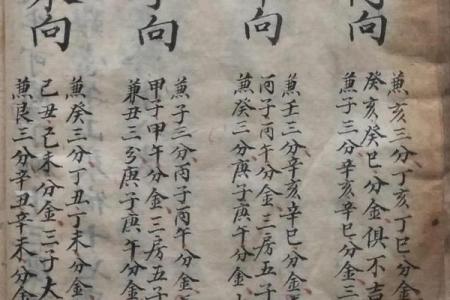 向
兼亥三分丁亥丁巳分金
癸亥癸巳分金俱不吉
兼子三分辛亥辛巳分金三
向
兼壬三分辛亥辛巳分金
丙子丙午分金三房五子
兼癸三分庚子庚午分金
向
兼子三分丙子丙午分金
甲子甲午分金三房五子
兼丑三分庚子庚午分金
向
兼癸三分丁丑丁未分金
己丑己未分金三子大
兼艮三分辛丑辛未分金